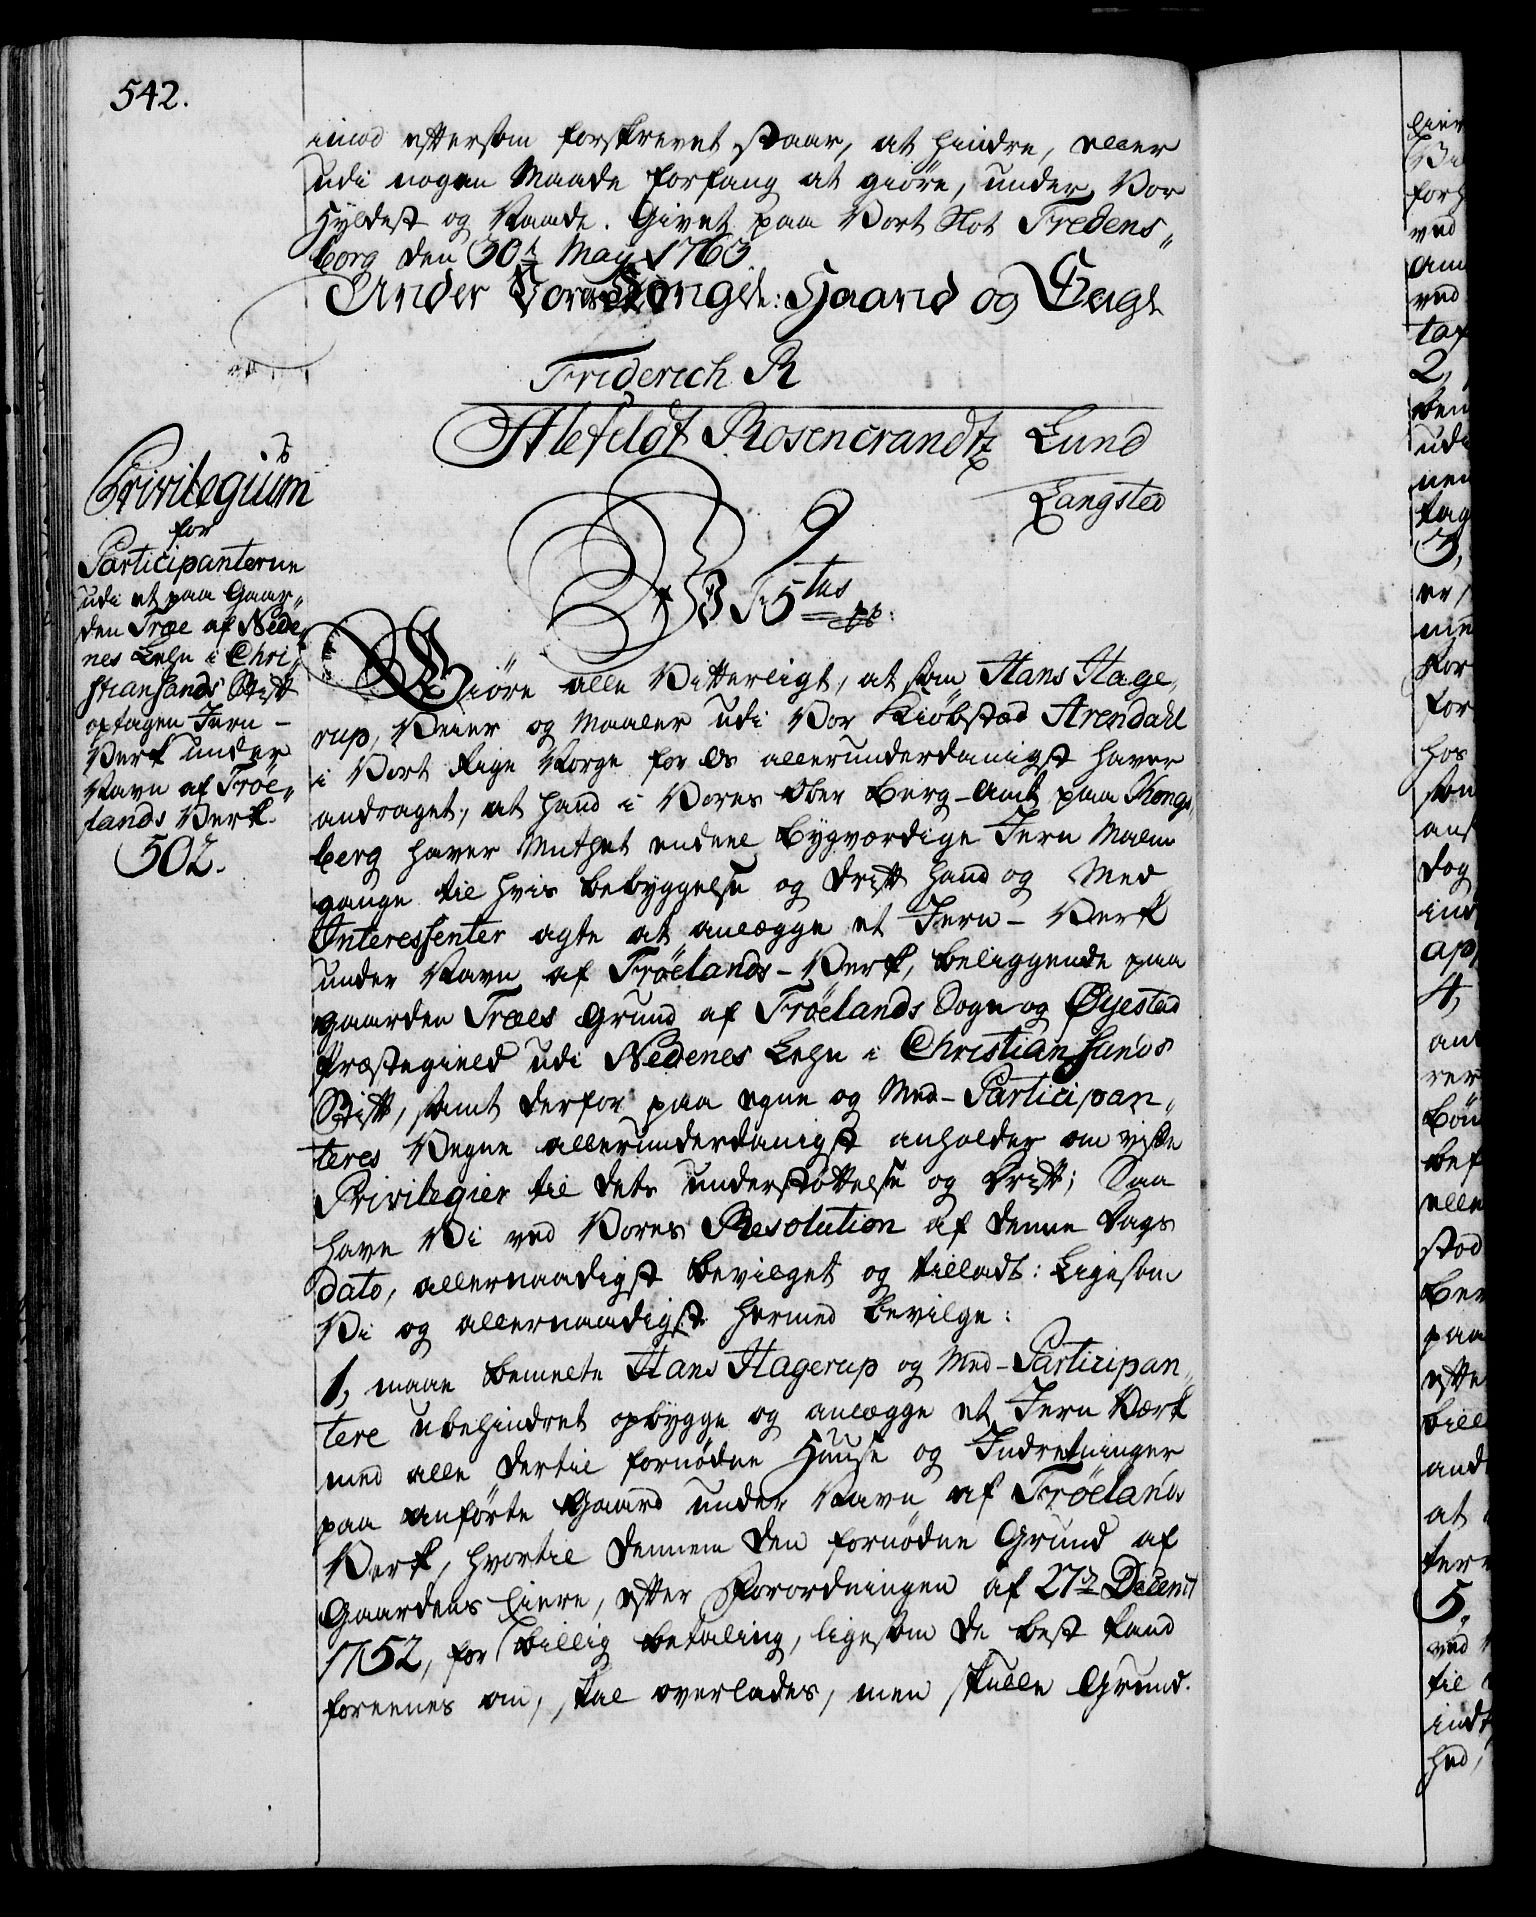 542.
imod eftersom forskrevet staar, at hindre, eller
udi nogen Maade forfang at giöre, under Vor
Hyldest og Naade. Givet paa Vort Slot Fredens„
borg den 30t May 1763
Under Vores Konge: Haand og Seigl
Friderich R
Ahlefeldt Rosencrandtz Lund
Langsted
Privilegium
for
Participanterne
udi et paa Gaar„
den Træe af Nede„
nes Lehn i Chri„
stiansands Stift
optagen Jern-
Verk under
Navn af Fröe„
lands Verk.
502.
F 5tus
Giöre alle Vitterligt, at som Hans Hage„
rup, Veier og Maaler udi Vor Kiöbstæd Arendahl
i Vort Rige Norge for Os allerunderdanigst haver
andraget, at hand i Vores Ober Berg-Amt paa Kongs„
berg haver Muthet endeel bygværdige Jern Malm
gange til hvis bebyggelse og Drift hand og Med
Interessenter agte at anlægge et Jern-Verk
under Navn af Fröelands-Verk, beliggende paa
gaarden Træes Grund af Fröelands Sogn og Öyestad
Præstegield udi Nedenes Lehn i Christiansands
Stift, samt derfor paa egne og Med-Participan„
teres Vegne allerunderdanigst anholder om visse
Privilegier til dets understöttelse og Drift; Saa
have Vi ved Vores Resolution af denne Dags
dato, allernaadigst bevilget og tilladt: Ligesom
Vi og allernaadigst hermed bevilge:
1, maae bemelte Hans Hagerup og Med-Participan„
tere ubehindret opbygge og anlægge et Jern Værk
med alle dertil fornödne Huuse og Indretninger
paa anförte Gaard under Navn af Fröelands
Verk, hvortil dennem den fornödne Grund af
Gaardens Eiere, efter Forordningen af 27de Decemt
1752, for billig betaling, ligesom de best kand
foreenes om, skal overlades, men skulle Grund.